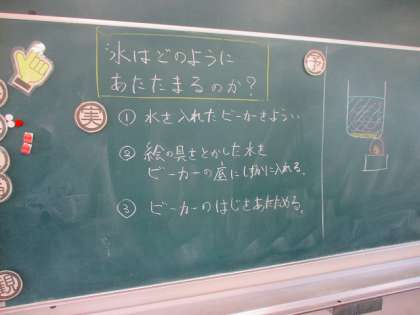 水はどのように
あたたまるのか？
予
実
① 水を入れたビーカーをようい
② 絵の具をとかした水を
ビーカーの底にしずかに入れる。
③ ビーカーのはじをあたためる。
観